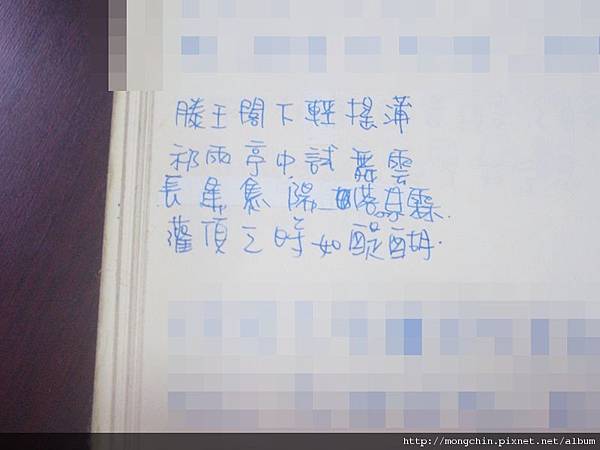 滕王閣下輕搖蒲
祁雨亭中試舞雲
長陽霖.
灌頂之時如醍醐.
http://mongchin.pixnet.net/album